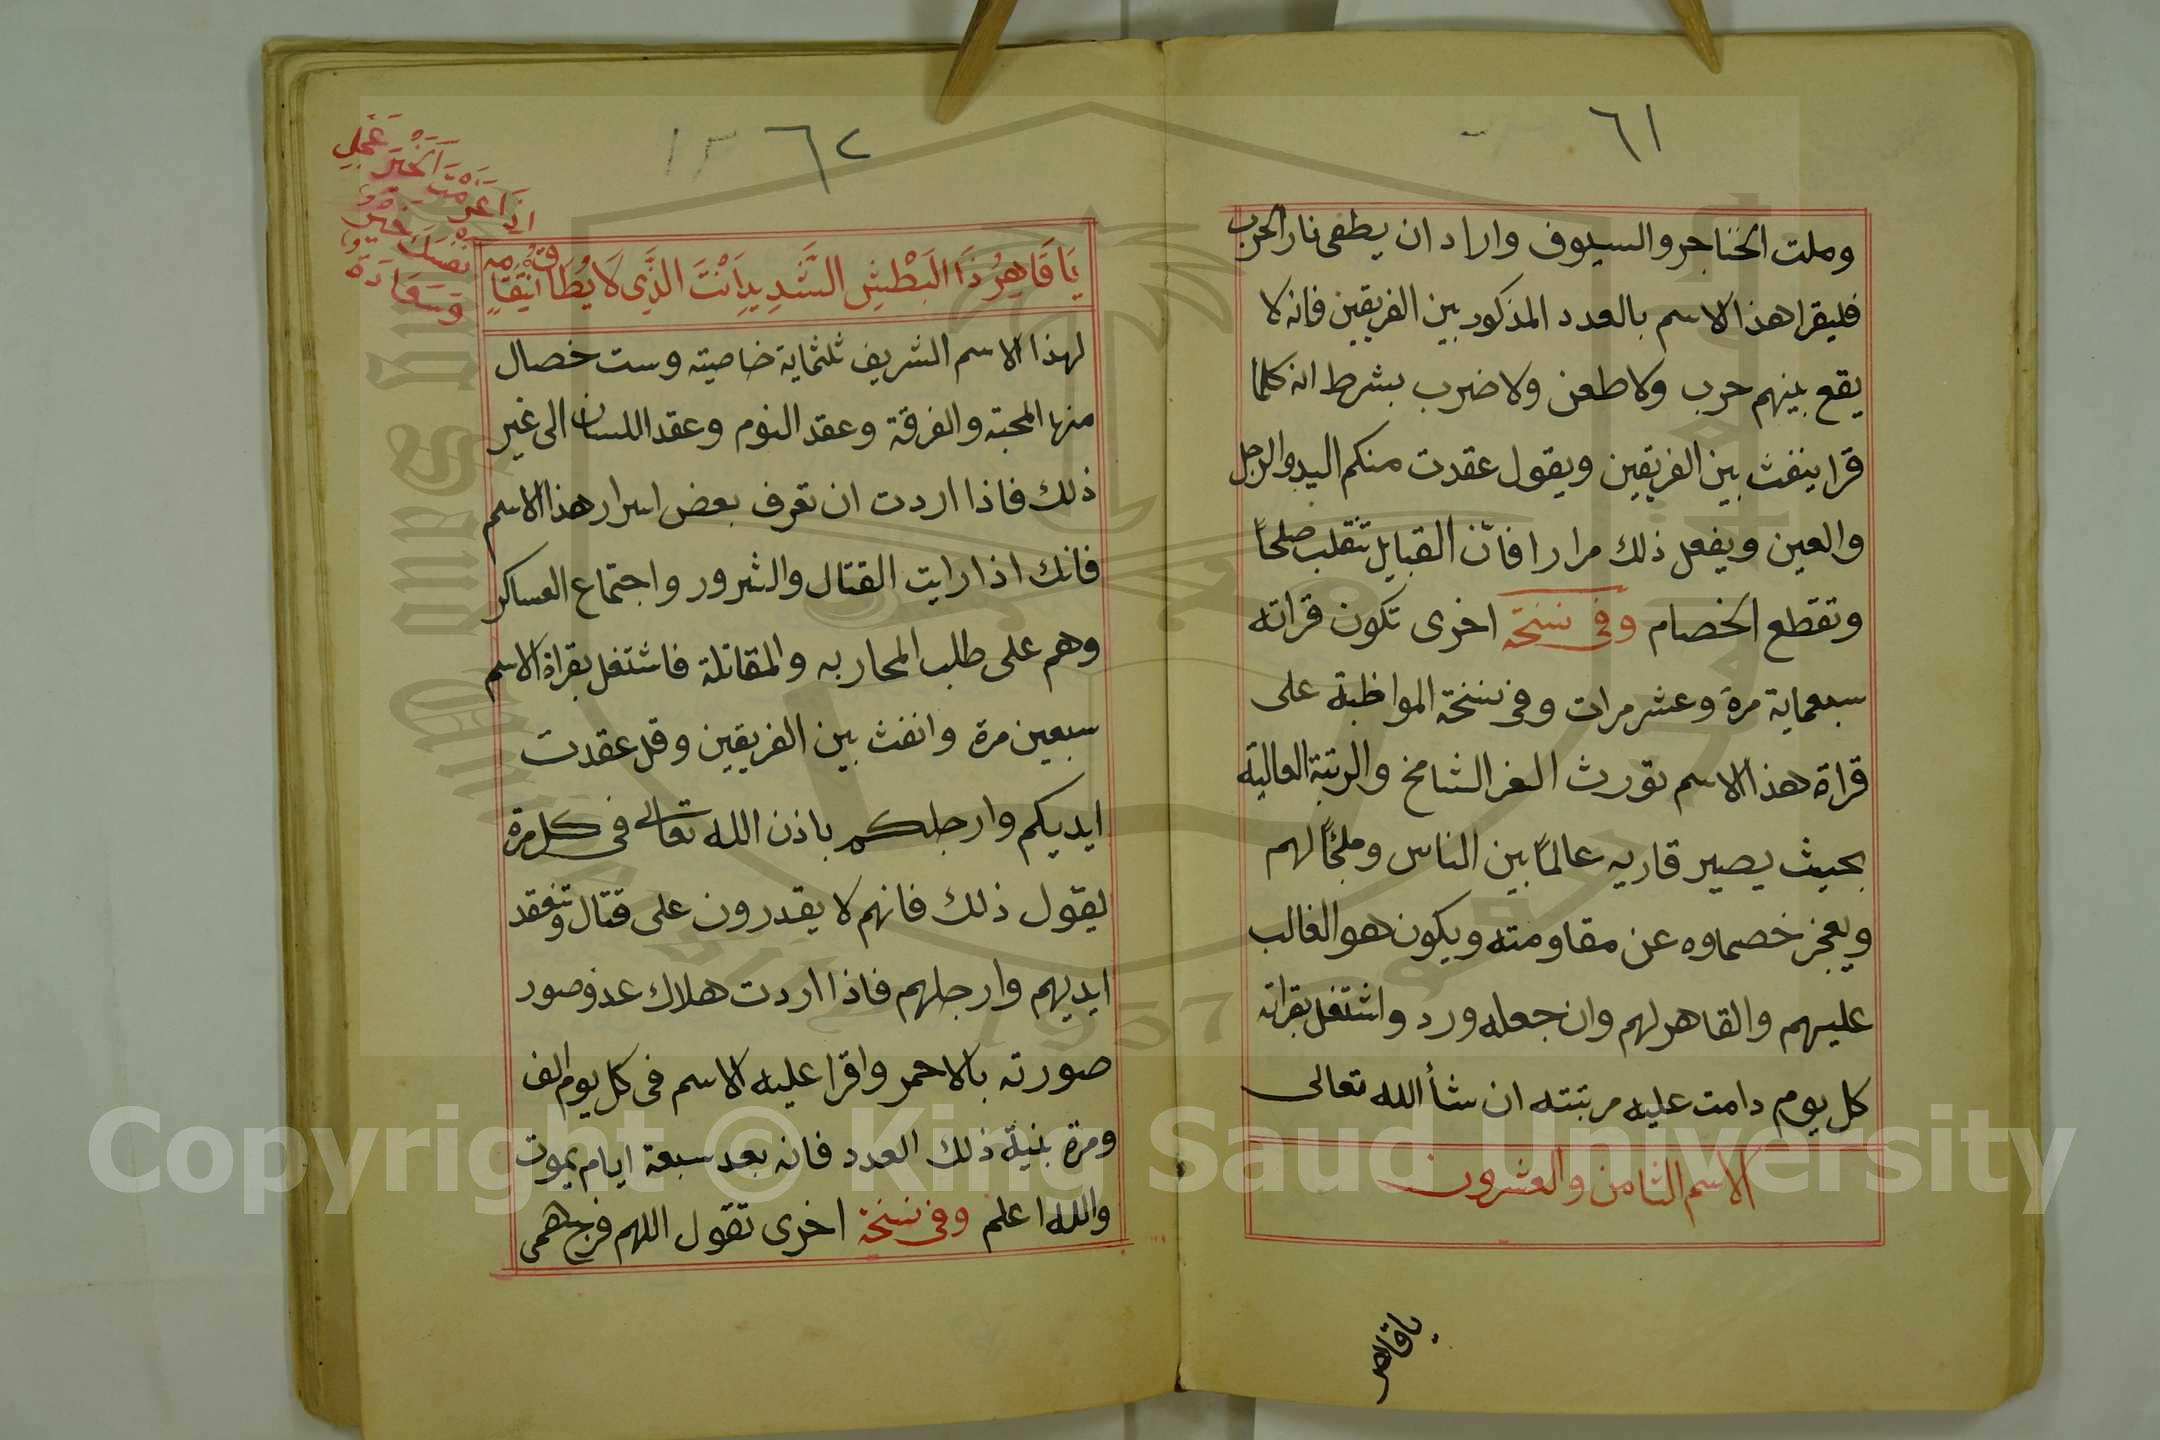 ٦١
وملت الخناجر والسيوف واراد ان يطفى نار الحرب
فليقرا هذا الاسم بالعدد المذكور بين الفريقين فانه لا
يقع بينهم حرب ولا طعن ولا ضرب بشرط انه كلما
قرا ينفث بين الفريقين ويقول عقدت منكم اليد والرجل
والعين ويفعل ذلك مرارا فانّ القبايل تنقلب صلحاً
وتقطع الخصام وفى نسخة اخرى تكون قراته
سبعماية مرة وعشر مرات وفى نسخة المواظبة على
قراة هذا الاسم تورث العز الشامخ والرتبة العالية
بحيث يصير قاريه عالماً بين الناس وملجًا لهم
ويعجز خصماوه عن مقاومته ويكون هو الغالب
عليهم والقاهر لهم وان جعله ورد واشتغل بقراته
كل يوم دامت عليه مرتبته ان شأ الله تعالى
الاسم الثامن والعشرون
يا قاهر
٦٢
١٣
يَا قَاهِرُ ذَا الْبَطْشِ الشَّدِيدِ اَنْتَ الَّذِى لَا يُطَاقُ انْتِقَامُهُ
لهذا الاسم الشريف ثلثماية خاصيته وست خصال
منها المحبته والفرقة وعقد النوم وعقد اللسان الى غير
ذلك فاذا اردت ان تعرف بعض اسرار هذا الاسم
فانك اذا رايت القتال والشرور واجتماع العساكر
وهم على طلب المحاربه والمقاتلة فاشتغل بقراة الاسم
سبعين مرة وانفث بين الفريقين وقل عقدت
ايديكم وارجلكم باذن الله تعالى فى كل مرة
يقول ذلك فانهم لا يقدرون على قتال وتنعقد
ايديهم وارجلهم فاذا اردت هلاك عدو صور
صورته بالاحمر واقرا عليه الاسم فى كل يوم الف
ومرة بنية ذلك العدد فانه بعد سبعة ايام يموت
والله اعلم وفى نسخة اخرى تقول اللهم فرج همى
Copyright © King Saud University
1957